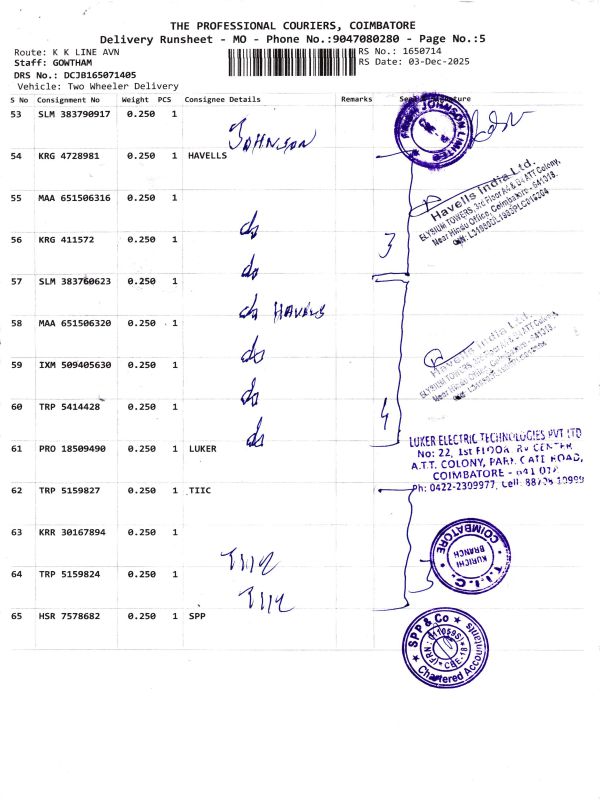 THE PROFESSIONAL COURIERS, COIMBATORE
Delivery Runsheet - MO - Phone No.:9047080280 - Page No.:5
Route: K K LINE AVN
RS No.: 1650714
Staff: GOWTHAM
RS Date: 03-Dec-2025
DRS No.: DCJB165071405
Vehicle: Two Wheeler Delivery
S No Consignment No Weight PCS Consignee Details Remarks
53 SLM 383790917 0.250 1
JOHNSON
JOHNSON LIMITED
54 KRG 4728981 0.250 1 HAVELLS
Havells India Ltd.
ELYSIUM TOWERS, 3rd Floor A4 & B4 ATT Colony,
Near Hindu Office, Coimbatore - 641018.
55 MAA 651506316 0.250 1
do
56 KRG 411572 0.250 1
3
do
57 SLM 383760623 0.250 1
do HAVELLS
58 MAA 651506320 0.250 1
Havells India Ltd.
do
59 IXM 509405630 0.250 1
do
60 TRP 5414428 0.250 1
4
do
61 PRO 18509490 0.250 1 LUKER
LUKER ELECTRIC TECHNOLOGIES PVT LTD
No: 22, 1st FLOOR
A.T.T. COLONY, ROAD,
COIMBATORE -
Ph: 0422-2309977, Cell:
62 TRP 5159827 0.250 1 TIIC
63 KRR 30167894 0.250 1
TIIC
T.I.I.C.
KURICHI
BRANCH
COIMBATORE
64 TRP 5159824 0.250 1
3
TIIC
65 HSR 7578682 0.250 1 SPP
SPP & Co
CBE-18
Chartered Accountants